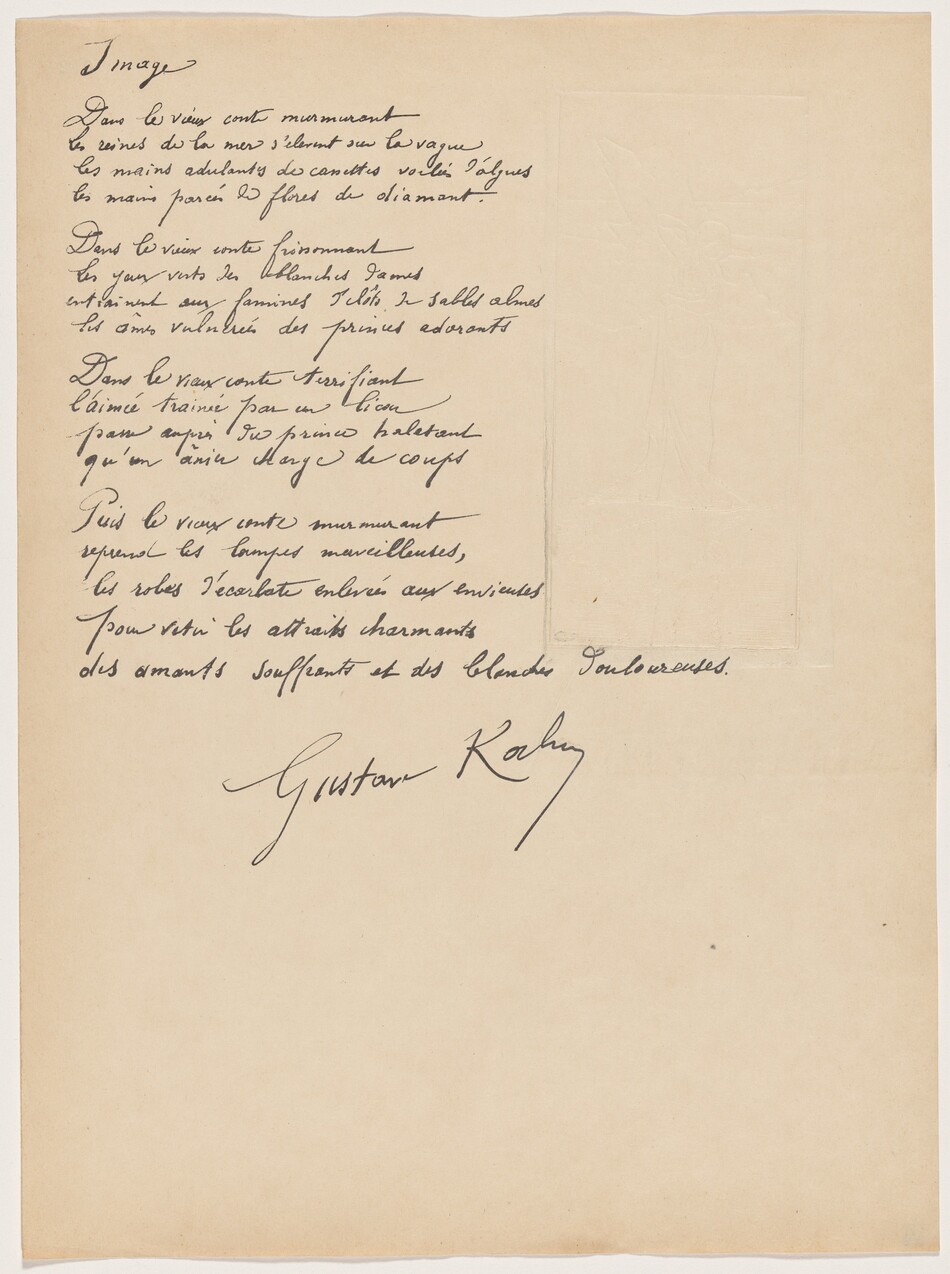 Image
Dans le vieux conte murmurant
les reines de la mer s'élèvent sur la vague
les mains adulantes de canettes voilées d'algues
les mains parées de flores de diamant.
Dans le vieux conte frissonnant
les yeux verts des blanches dames
entrainent aux famines d'îlots de sables almes
les âmes vulnérées des princes adorants
Dans le vieux conte terrifiant
l'aimée trainée par un licou
passe auprès du prince haletant
qu'un ânier charge de coups
Puis le vieux conte murmurant
reprend les lampes merveilleuses,
les robes d'écarlate enlevées aux envieuses
pour vetir les attraits charmants
des amants souffrants et des blanches douloureuses.
Gustave Kahn